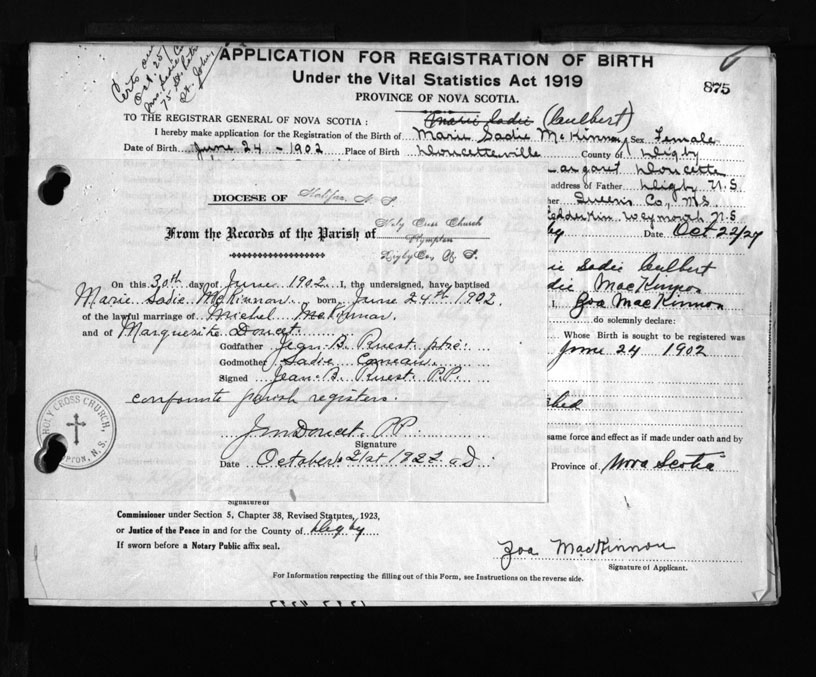 Certs
Oct. 25/
Mrs. Sadie
75
St. John,
APPLICATION FOR REGISTRATION OF BIRTH
Under the Vital Statistics Act 1919
875
PROVINCE OF NOVA SCOTIA.
TO THE REGISTRAR GENERAL OF NOVA SCOTIA : Marie Sadie (Culbert)
I hereby make application for the Registration of the Birth of Marie Sadie McKinnon Sex Female
Date of Birth June 24 - 1902 Place of Birth Doucetteville County of Digby
argaret Doucette
DIOCESE OF Halifax, N. S.
address of Father Digby N.S
her Queens Co, N.S.
From the Records of the Parish of Holy Cross Church
Plympton
Digby Co, N. S.
Weymouth N.S
Date Oct 22/27
AFFIDAVIT
On this 30th day of June 1902. I, the undersigned, have baptised
Marie Sadie McKinnon born June 24th 1902.
of the lawful marriage of Michel McKinnon.
and of Marguerite Doucet.
Godfather Jean B. Ruest ptre.
Godmother Sadie Comeau
Signed Jean B. Ruest. P.P.
conformité parish registers.
Doucet. P.P.
Signature
Date October 21st 1927 A.D.
rie Sadie Culbert
die MacKinnon
I, Zoa MacKinnon
do solemnly declare:
Whose Birth is sought to be registered was
June 24 1902
same force and effect as if made under oath and by
Province of Nova Scotia
HOLY CROSS CHURCH,
PLYMPTON, N.S.
Signature of
Commissioner under Section 5, Chapter 38, Revised Statutes, 1923,
or Justice of the Peace in and for the County of Digby
If sworn before a Notary Public affix seal.
Zoa MacKinnon
Signature of Applicant.
For Information respecting the filling out of this Form, see Instructions on the reverse side.